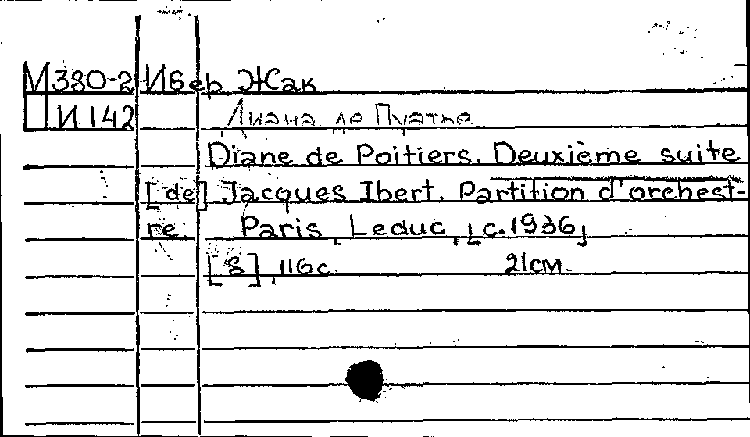 М380-2 Ибер Жак
И142 Диана де Пуатье
Diane de Poitiers. Deuxième suite
[de] Jacques Ibert. Partition d'orchest-
re. Paris, Leduc, [c.1936]
[8], 116с. 21см.